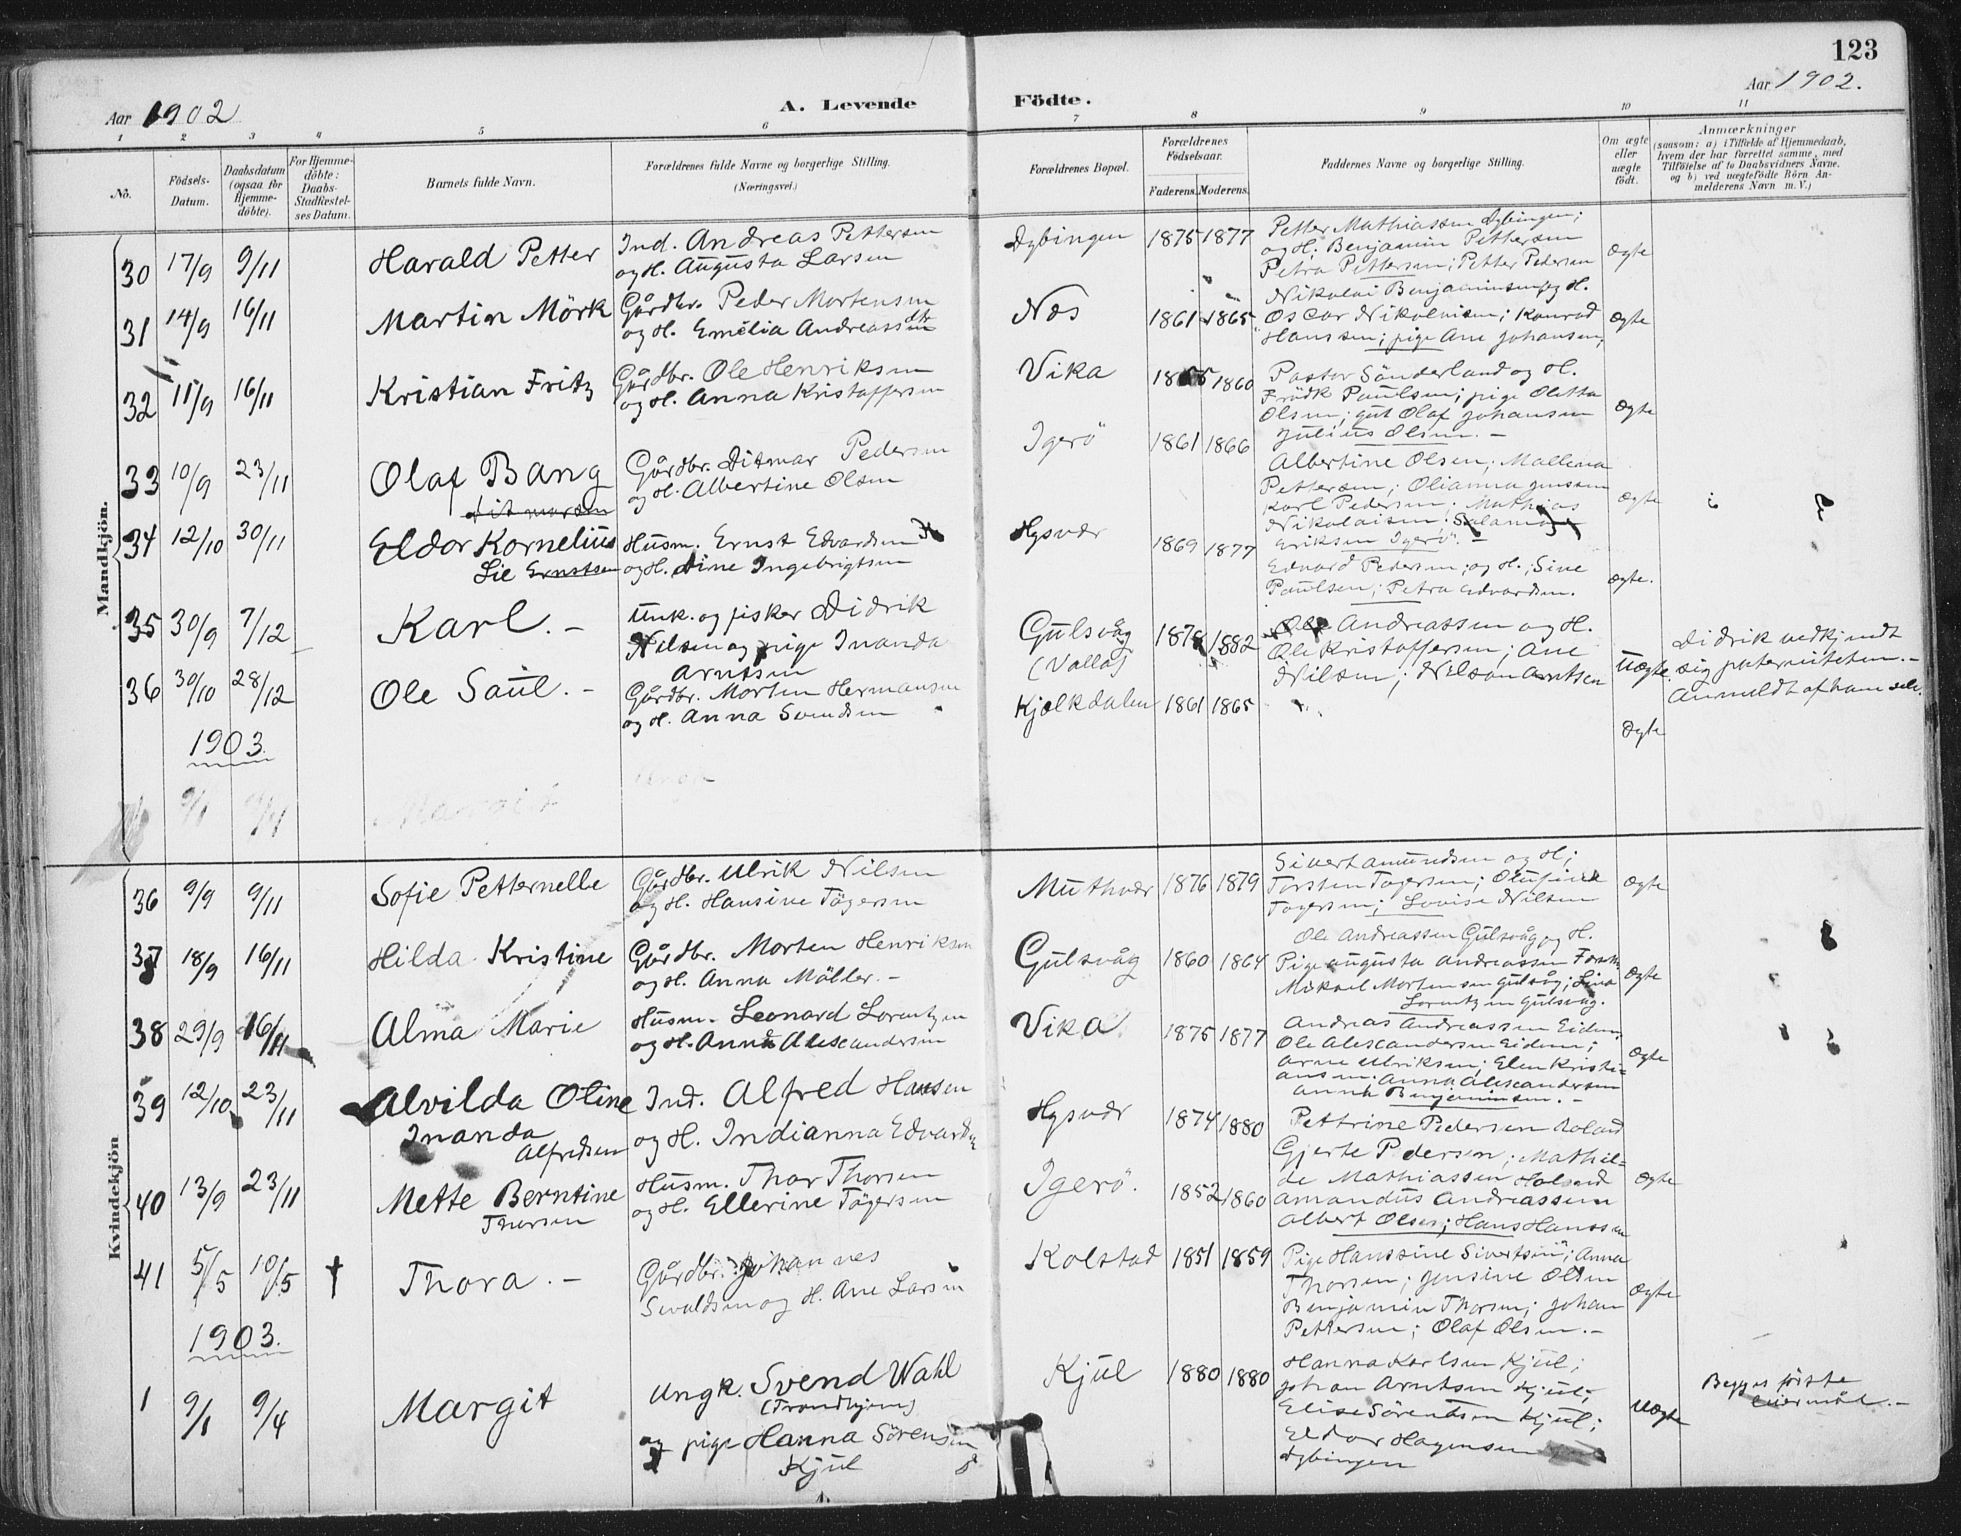 123
Aar 1902
A. Levende
Födte.
Aar 1902.
1 2 3 4 5 6 7 8 9 10 11
No.
Födsels-Datum.
Daabsdatum (ogsaa for Hjemme-döbte).
For Hjemme-döbte: Daabs-Stadfæstel-ses Datum.
Barnets fulde Navn.
Forældrenes fulde Navne og borgerlige Stilling.
(Næringsvei.)
Forældrenes Bopæl.
Forældrenes Födselsaar.
Faderens. Moderens.
Faddernes Navne og borgerlige Stilling.
Om ægte eller uægte födt.
Anmærkninger
(saasom: a) i Tilfælde af Hjemmedaab,
hvem der har forrettet samme, med
Tilföielse af to Daabsvidners Navne.
og b) ved uægtefödte Börn An-
melderens Navn m. V.)
Mandkjön.
30 17/9 9/11 Harald Petter
Ind. Andreas Pettersen
og H. Augusta Larsen
Dybingen 1875 1877
Petter Mathiassen Dybingen;
og H; Benjamin Pettersen
Petra Pettersen; Petter Pedersen
Ægte
31 14/9 16/11 Martin Mörk
Gårdbr. Peder Mortensen
og H. Emelia Andreassen
Næs 1861 1865
Nikolai Benjaminsen og H.
Oscar Nikolaisen; Konrad
Hanssen; pige Ane Johansen;
Ægte
32 11/9 16/11 Kristian Fritz
Gårdbr. Ole Henriksen
og H. Anna Kristoffersen
Vika 1860
Pastor Sönderland og H.
Frödk Paulsen; pige Oletta
Olsen; gut Olaf Johansen
Julius Olsen. -
Ægte
33 10/9 23/11 Olaf Bang
Ditmarsen
Gårdbr. Ditmar Pedersen
og H. Albertine Olsen
Igerö 1861 1866
Albertine Olsen; Mallena
Pettersen; Olianna Jenssen
Karl Pedersen; Mathias
Nikolaisen; Salamon
Eriksen Igerö. -
Ægte
34 12/10 30/11 Eldor Kornelius
Lie Ernstsen
Husm. Ernst Edvardsen
og H. Dine Ingebrigtsen
Hysvær 1869 1877
Edvard Pedersen; og H.; Sine
Paulsen; Petra Edvardsen.
Ægte.
35 30/9 7/12 Karl. -
Unk. og fisker Didrik
Nilsen og pige Inanda
Arntsen
Gulsvåg
(Valla) 1882
Ole Andreassen og H.
Ole Kristoffersen; Ane
Nilsen; Nilson Arntsen
Uægte.
Didrik vedkjendt
sig paterniteten. -
Anmeldt af ham selv.
36 30/10 28/12 Ole Saul. -
Gårdbr. Morten Hermansen
og H. Anna Svendsen
Kjælkdalen 1861 1865
Ægte
1903.
9/1 Margit
Kvindekjön
36 9/9 9/11 Sofie Petternelle
Gårdbr. Ulrik Nilsen
og H. Hansine Tögersen
Muthvær 1876 1879
Sivert Amundsen og H;
Torsten Togersen; Olufine
Togersen; Lovise Nilsen
Ægte
37 18/9 16/11 Hilda Kristine
Gårdbr. Morten Henriksen
og H. Anna Möller. -
Gulsvåg 1860 1864
Ole Andreassen Gulsvåg og H.
Pige Augusta Andreassen
Mikael Mortensen Gulsvåg; Lina
Lorentzen Gulsvåg.
Ægte
38 29/9 16/11 Alma Marie
Husm. Leonard Lorentzen
og H. Anna Alexandersen
Vika 1875 1877
Andreas Andreassen Eidem;
Ole Alexandersen Eidem;
Arne Ulriksen; Elen Kristi-
ansen. Anna Alexandersen
Anna Benjaminsen. -
Ægte
39 12/10 23/11 Alvilda Oline
Inanda
Alfredsen
Ind. Alfred Hansen
og H. Indianna Edvardsen
Hysvær 1874 1880
Pettrine Pedersen
Gjerte Pedersen; Mathil-
de Mathiassen
Amandus Andreassen
Albert Olsen; Hans Hanssen
Ægte
40 13/9 23/11 Mette Berntine
Thorsen
Husm. Thor Thorsen
og H. Ellerine Tögersen
Igerö. 1852 1860
41 5/5 10/5 † Thora. -
Gårdbr. Johannes
Sivaldsen og H. Ane Larsen
Kolstad 1851 1859
Pige Hanssine Sivertsen; Anna
Thorsen; Jensine Olsen
Benjamin Thorsen; Johan
Pettersen; Olaf Olsen. -
Ægte
1903.
1 9/1 9/4 Margit
Ungk. Svend Wahl
(Trondhjem)
og pige Hanna Sörensen
Kjul
Kjul 1880 1880
Hanna Karlsen Kjul;
Johan Arntsen Kjul;
Elise Sörentsen Kjul;
Eldor Hagensen
Dybingen
Uægte
Begges förste
leiermål. -